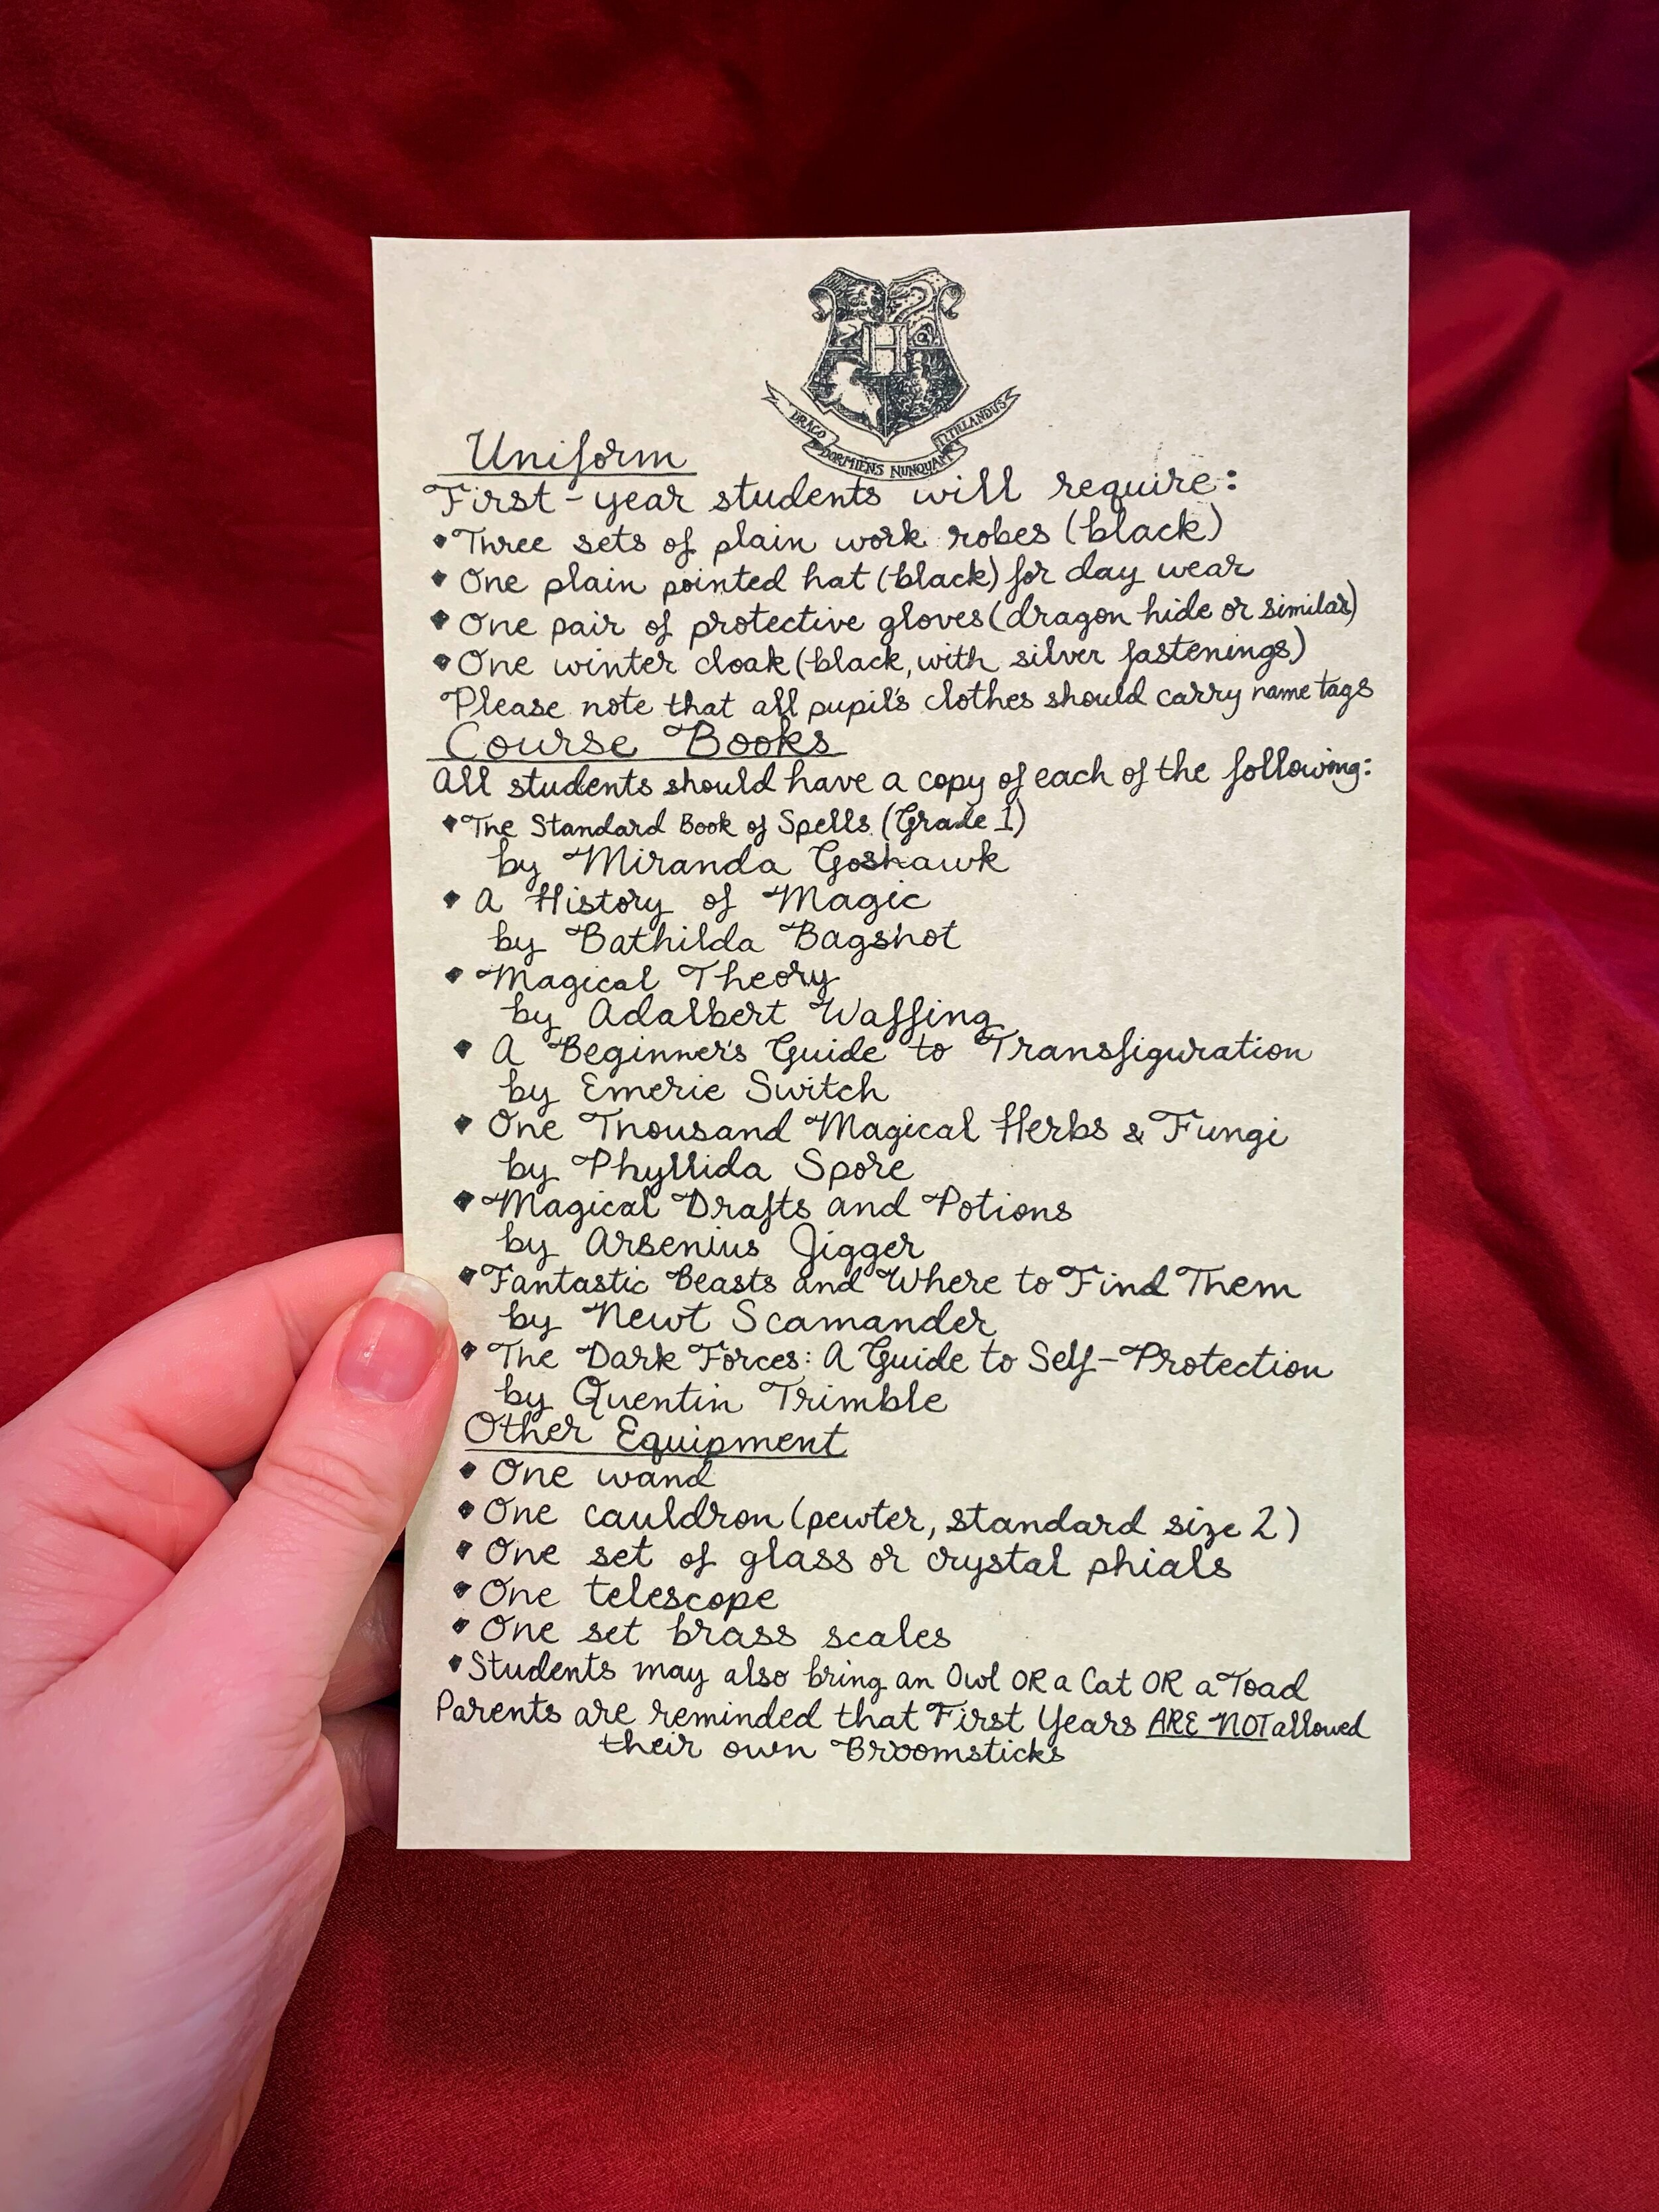 DRACO DORMIENS NUNQUAM TITILLANDUS
Uniform
First-year students will require:
• Three sets of plain work robes (black)
• One plain pointed hat (black) for day wear
• One pair of protective gloves (dragon hide or similar)
• One winter cloak (black, with silver fastenings)
Please note that all pupil's clothes should carry name tags
Course Books
All students should have a copy of each of the following:
• The Standard Book of Spells (Grade 1)
by Miranda Goshawk
• A History of Magic
by Bathilda Bagshot
• Magical Theory
by Adalbert Waffing
• A Beginner's Guide to Transfiguration
by Emeric Switch
• One Thousand Magical Herbs & Fungi
by Phyllida Spore
• Magical Drafts and Potions
by Arsenius Jigger
• Fantastic Beasts and Where to Find Them
by Newt Scamander
• The Dark Forces: A Guide to Self-Protection
by Quentin Trimble
Other Equipment
• One wand
• One cauldron (pewter, standard size 2)
• One set of glass or crystal phials
• One telescope
• One set brass scales
• Students may also bring an Owl OR a Cat OR a Toad
Parents are reminded that First Years ARE NOT allowed
their own Broomsticks